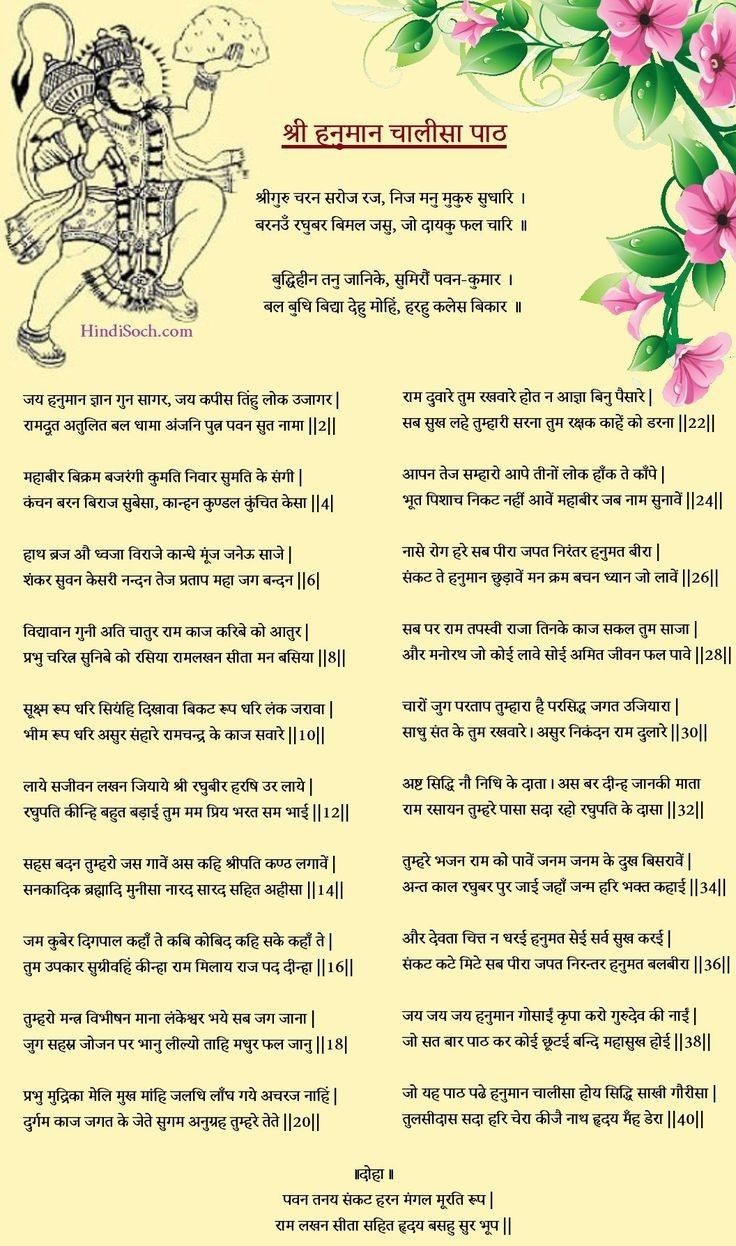 श्री हनुमान चालीसा पाठ
श्रीगुरु चरन सरोज रज, निज मनु मुकुरु सुधारि ।
बरनउँ रघुबर बिमल जसु, जो दायकु फल चारि ॥
बुद्धिहीन तनु जानिके, सुमिरौं पवन-कुमार ।
बल बुधि बिद्या देहु मोहिं, हरहु कलेस बिकार ॥
HindiSoch.com
जय हनुमान ज्ञान गुन सागर, जय कपीस तिंहु लोक उजागर |
रामदूत अतुलित बल धामा अंजनि पुत्र पवन सुत नामा ||2||
महाबीर बिक्रम बजरंगी कुमति निवार सुमति के संगी |
कंचन बरन बिराज सुबेसा, कान्हन कुण्डल कुंचित केसा ||4|
हाथ ब्रज औ ध्वजा विराजे कान्धे मूंज जनेऊ साजे |
शंकर सुवन केसरी नन्दन तेज प्रताप महा जग बन्दन ||6|
विद्यावान गुनी अति चातुर राम काज करिबे को आतुर |
प्रभु चरित्र सुनिबे को रसिया रामलखन सीता मन बसिया ||8||
सूक्ष्म रूप धरि सियंहि दिखावा बिकट रूप धरि लंक जरावा |
भीम रूप धरि असुर संहारे रामचन्द्र के काज सवारे ||10||
लाये सजीवन लखन जियाये श्री रघुबीर हरषि उर लाये |
रघुपति कीन्हि बहुत बड़ाई तुम मम प्रिय भरत सम भाई ||12||
सहस बदन तुम्हरो जस गावें अस कहि श्रीपति कण्ठ लगावें |
सनकादिक ब्रह्मादि मुनीसा नारद सारद सहित अहीसा ||14||
जम कुबेर दिगपाल कहाँ ते कबि कोबिद कहि सके कहाँ ते |
तुम उपकार सुग्रीवहिं कीन्हा राम मिलाय राज पद दीन्हा ||16||
तुम्हरो मन्त्र विभीषन माना लंकेश्वर भये सब जग जाना |
जुग सहस्र जोजन पर भानु लील्यो ताहि मधुर फल जानु ||18|
प्रभु मुद्रिका मेलि मुख मांहि जलधि लाँघ गये अचरज नाहिं |
दुर्गम काज जगत के जेते सुगम अनुग्रह तुम्हरे तेते ||20||
राम दुवारे तुम रखवारे होत न आज्ञा बिनु पैसारे |
सब सुख लहे तुम्हारी सरना तुम रक्षक काहें को डरना ||22||
आपन तेज सम्हारो आपे तीनों लोक हाँक ते काँपे |
भूत पिशाच निकट नहीं आवें महाबीर जब नाम सुनावें ||24||
नासे रोग हरे सब पीरा जपत निरंतर हनुमत बीरा |
संकट ते हनुमान छुड़ावें मन क्रम बचन ध्यान जो लावें ||26||
सब पर राम तपस्वी राजा तिनके काज सकल तुम साजा |
और मनोरथ जो कोई लावे सोई अमित जीवन फल पावे ||28||
चारों जुग परताप तुम्हारा है परसिद्ध जगत उजियारा |
साधु संत के तुम रखवारे। असुर निकंदन राम दुलारे ||30||
अष्ट सिद्धि नौ निधि के दाता। अस बर दीन्ह जानकी माता
राम रसायन तुम्हरे पासा सदा रहो रघुपति के दासा ||32||
तुम्हरे भजन राम को पावें जनम जनम के दुख बिसरावें |
अन्त काल रघुबर पुर जाई जहाँ जन्म हरि भक्त कहाई ||34||
और देवता चित्त न धरई हनुमत सेई सर्व सुख करई |
संकट कटे मिटे सब पीरा जपत निरन्तर हनुमत बलबीरा ||36||
जय जय जय हनुमान गोसाईं कृपा करो गुरुदेव की नाईं |
जो सत बार पाठ कर कोई छूटई बन्दि महासुख होई ||38||
जो यह पाठ पढे हनुमान चालीसा होय सिद्धि साखी गौरीसा |
तुलसीदास सदा हरि चेरा कीजै नाथ हृदय मँह डेरा ||40||
॥दोहा॥
पवन तनय संकट हरन मंगल मूरति रूप |
राम लखन सीता सहित हृदय बसहु सुर भूप ||